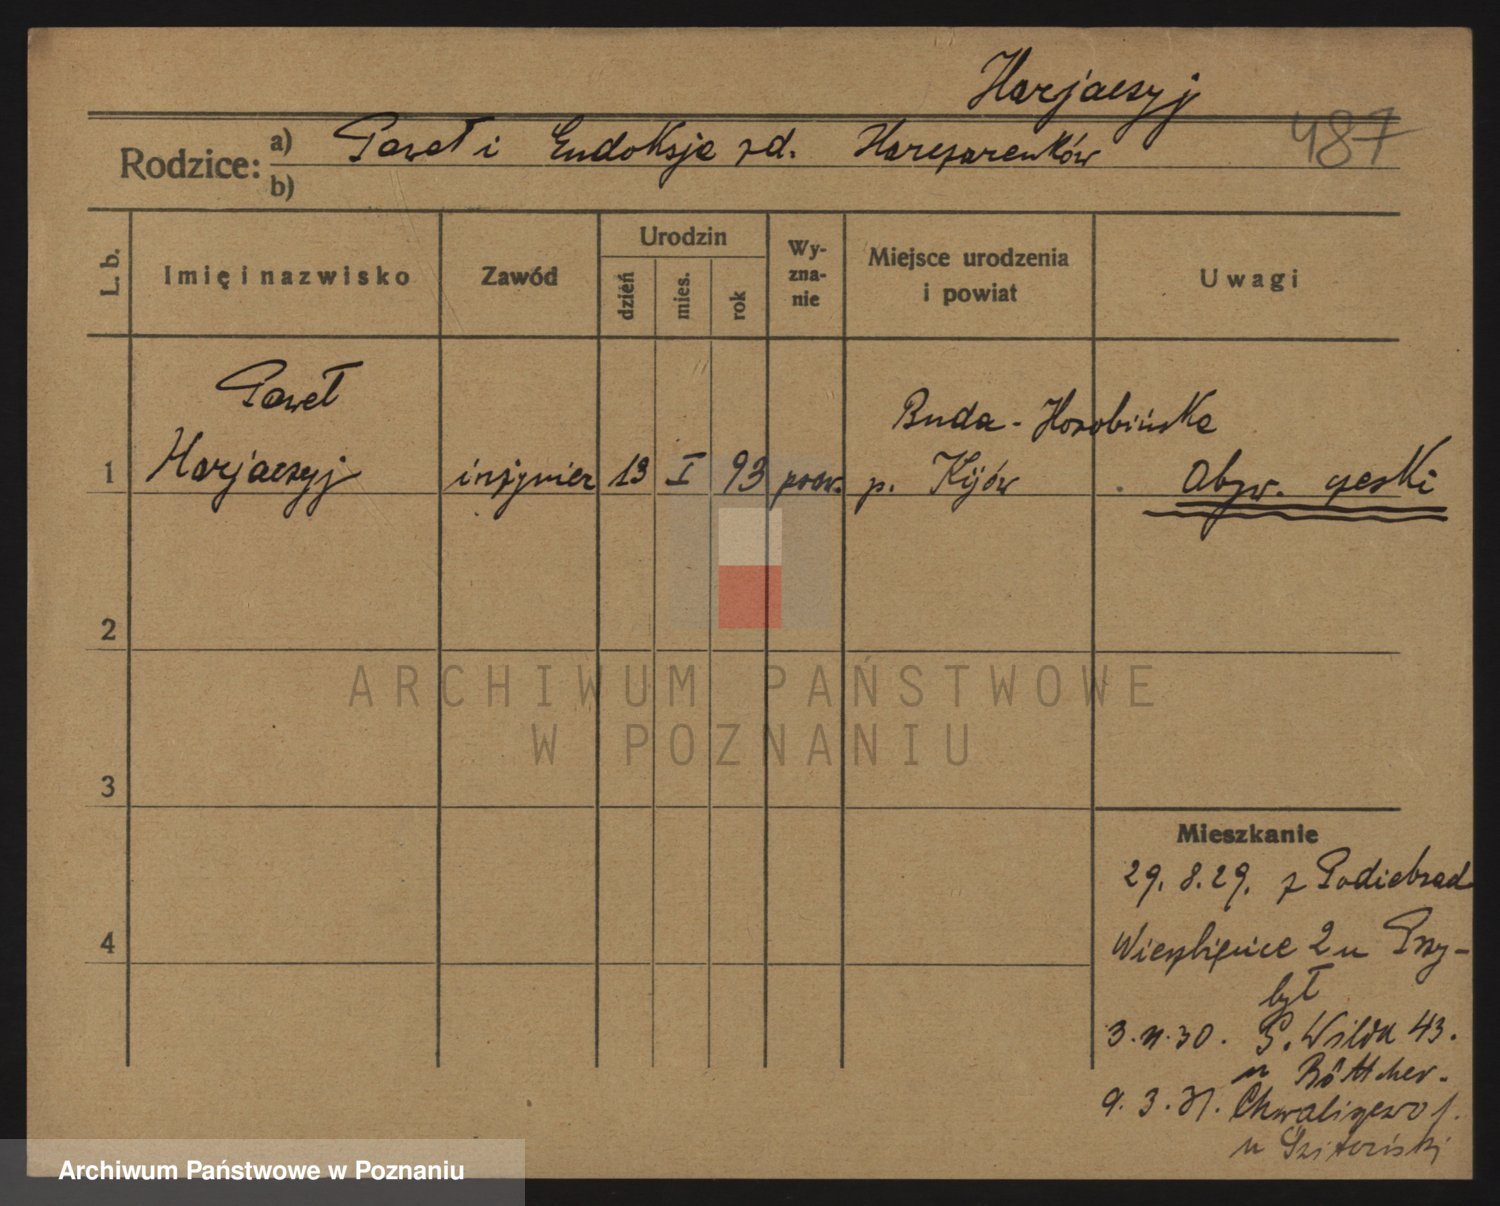 Harjaczyj
487
Rodzice: a) Paweł i Eudoksja zd. Harczarenków
b)
L. b.
Imię i nazwisko
Zawód
Urodzin
dzień
mies.
rok
Wy-
zna-
nie
Miejsce urodzenia
i powiat
Uwagi
Paweł
Buda - Horobińska
1 Harjaczyj inżynier 13 I 93 praw. p. Kijów Obyw. czeski
2
3
4
Mieszkanie
29. 8. 29. z Podiebrad
Wierzbięcice 2 u Przy-
był
3. 30. G. Wilda 43.
u Böttcher.
9. 3. 31. Chwaliszewo 1.
u
ARCHIWUM PAŃSTWOWE
W POZNANIU
Archiwum Państwowe w Poznaniu